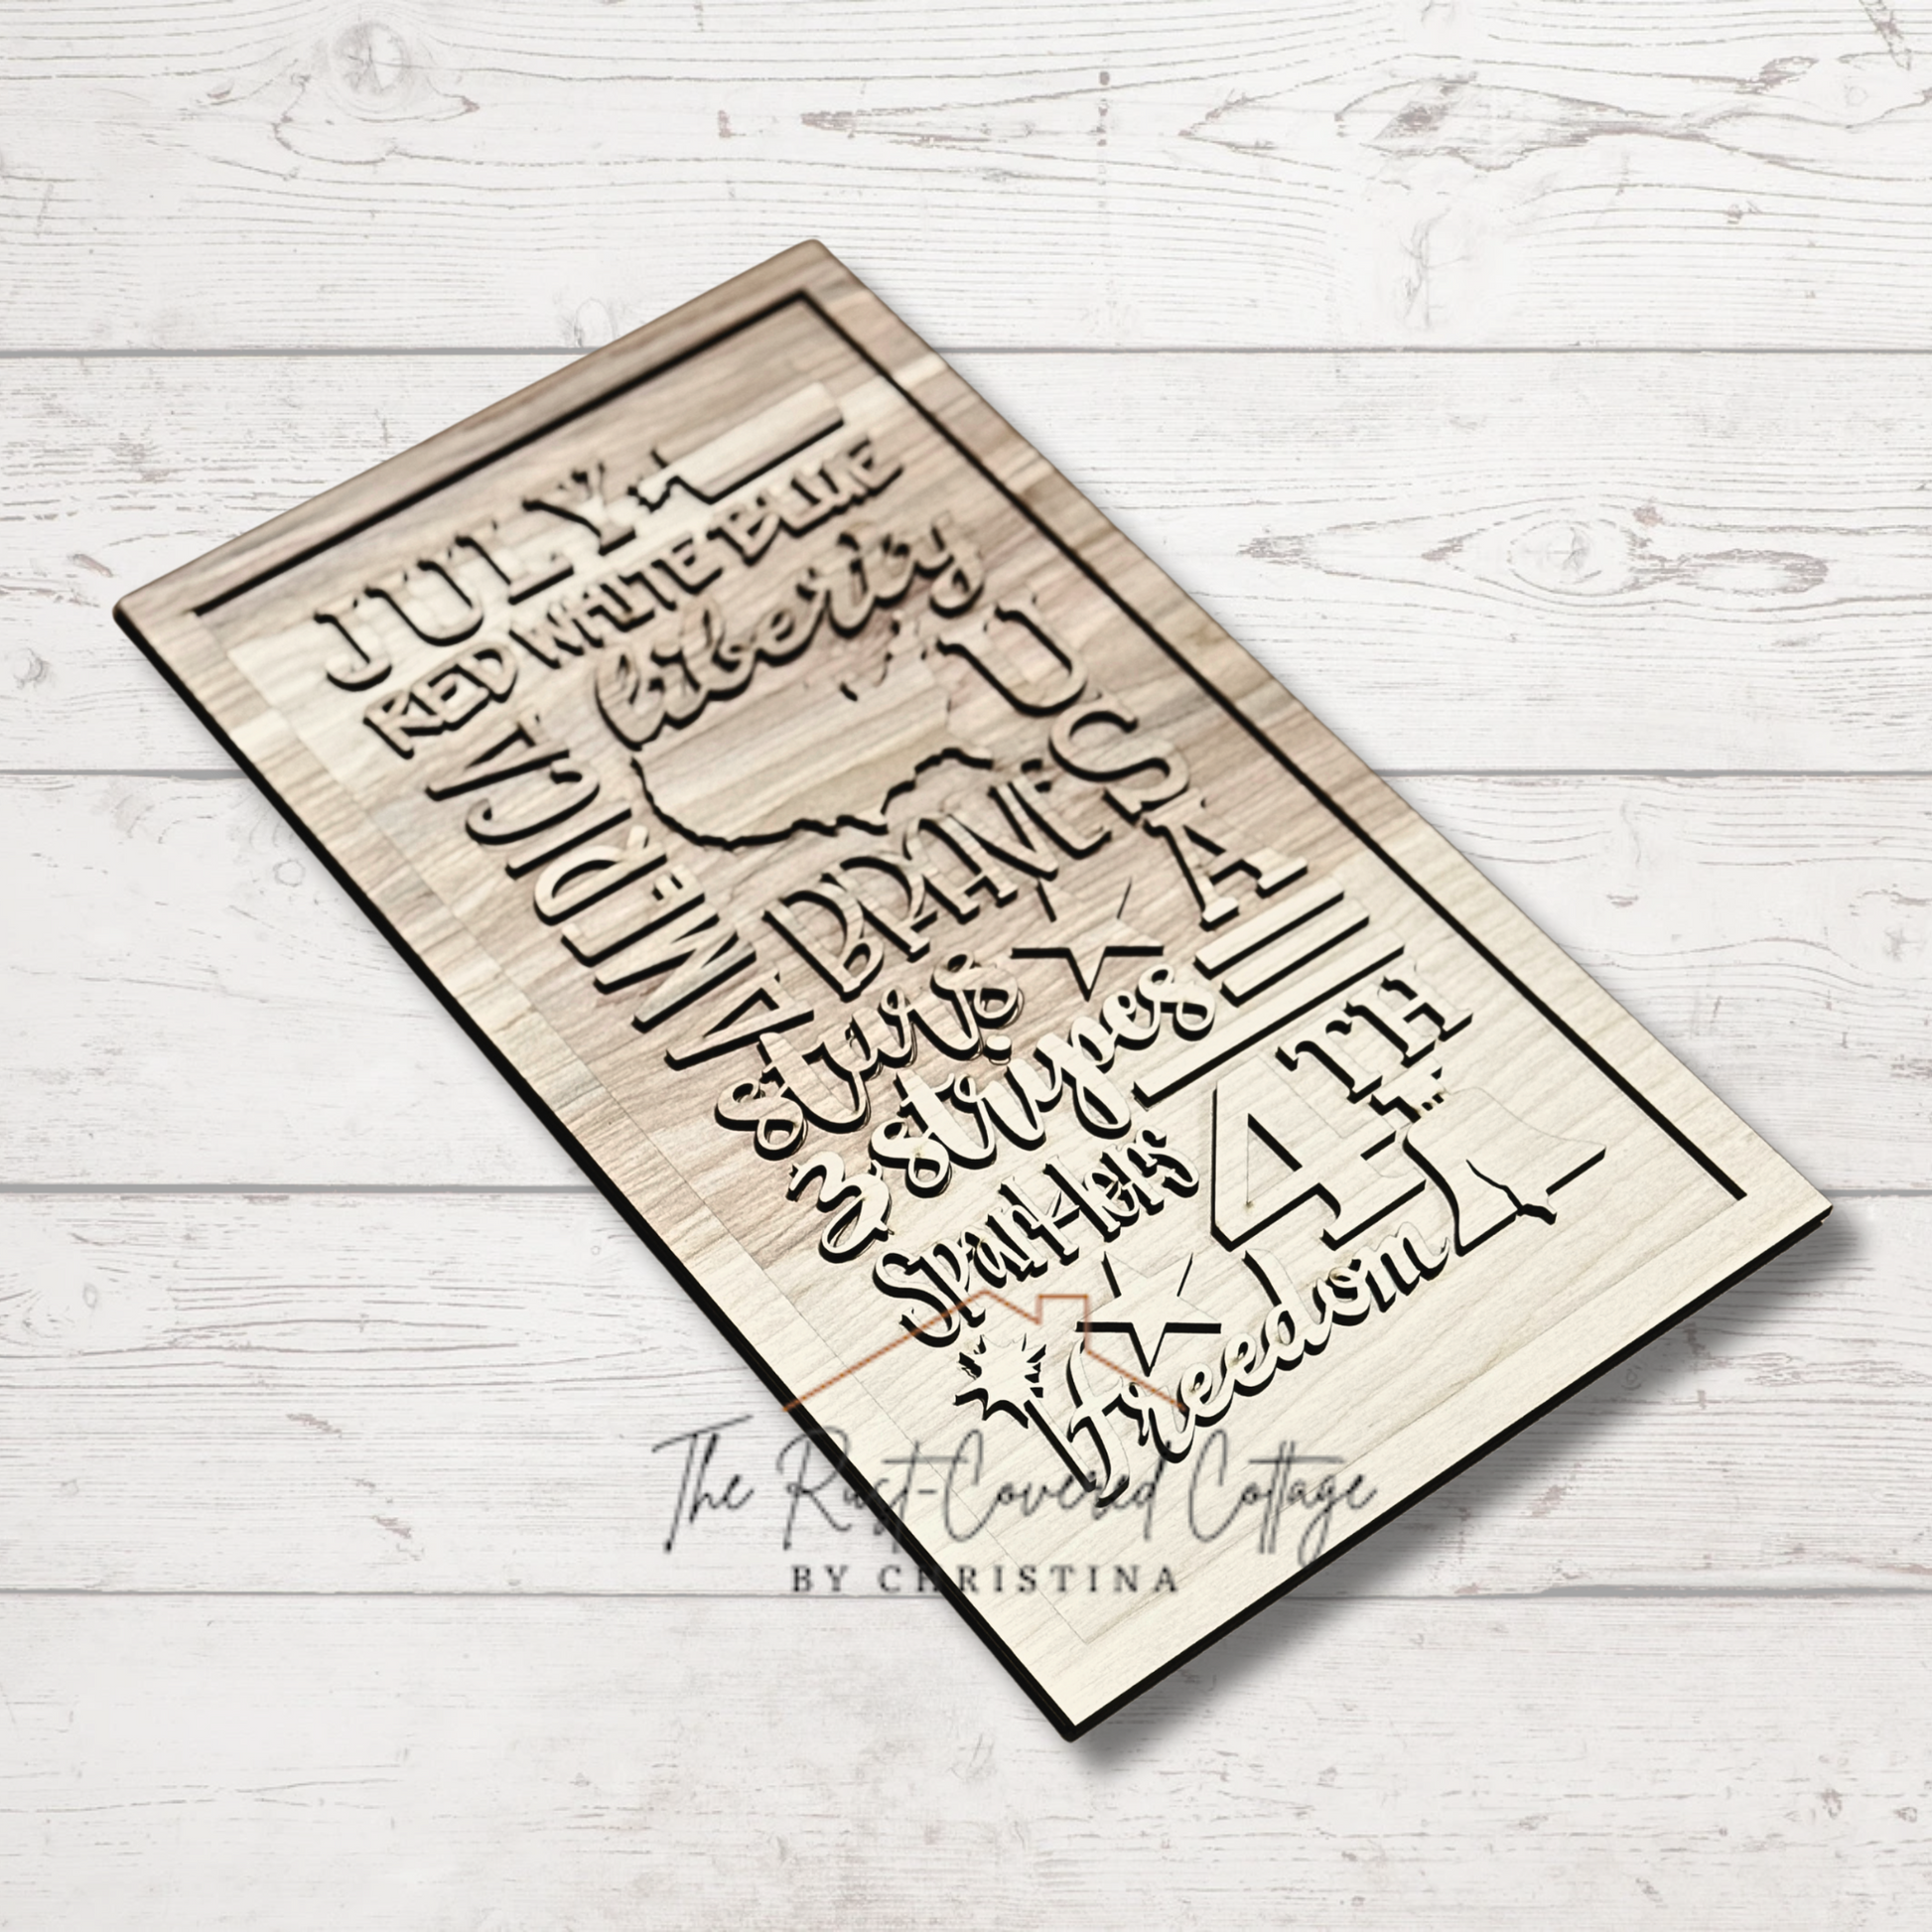 JULY
RED WHITE BLUE
liberty
USA
AMERICA
BRAVE
stars
3 stripes
4TH
Sparklers
freedom
The Rust-Covered Cottage
BY CHRISTINA